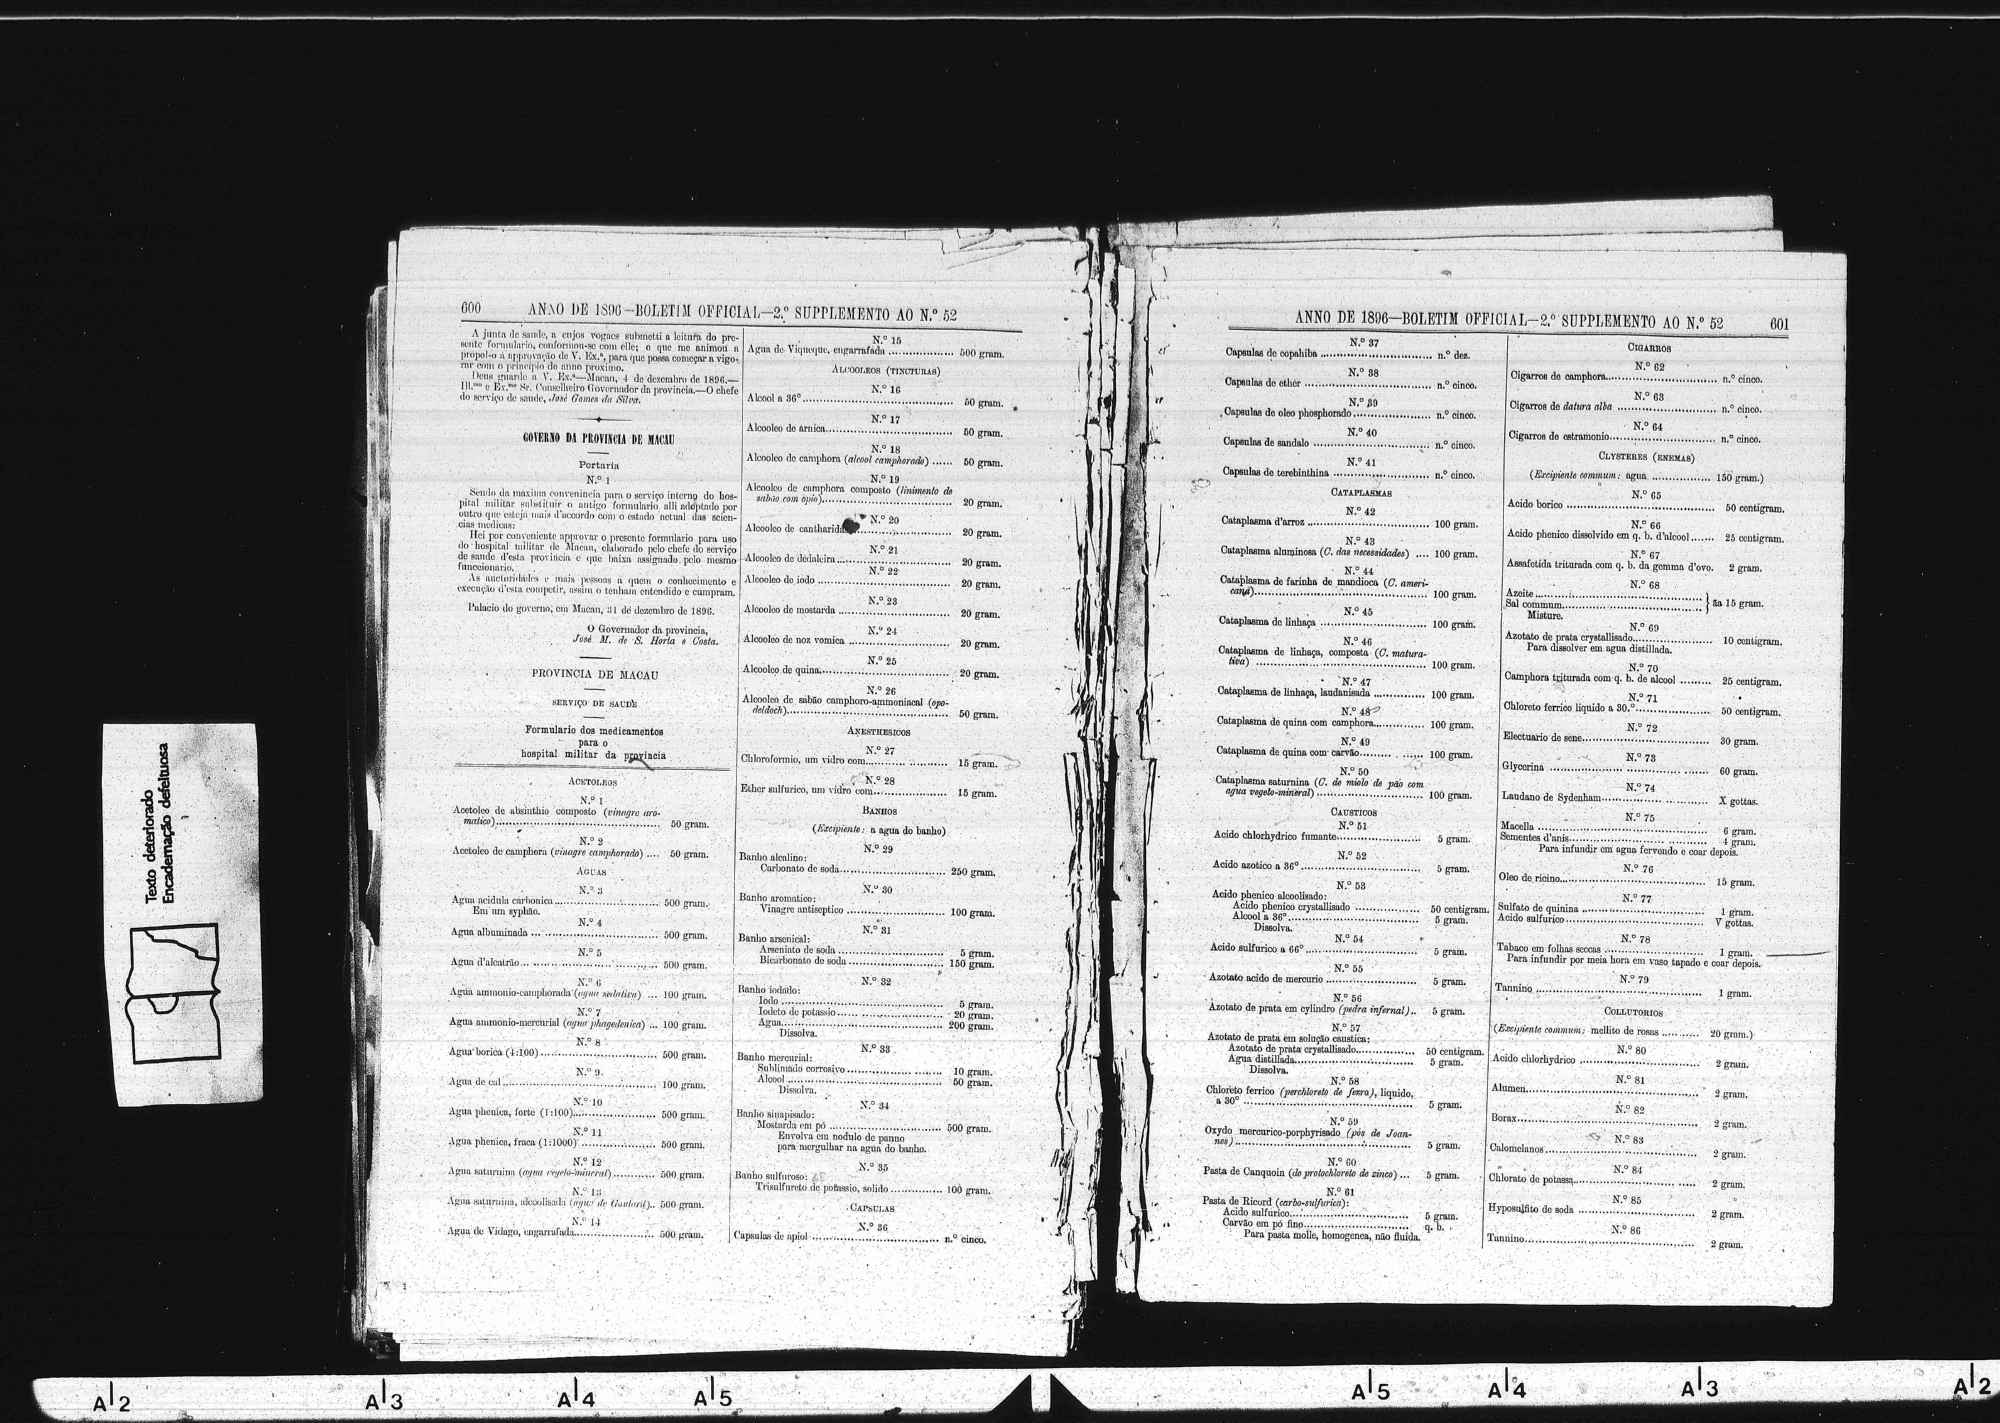 600 ANNO DE 1896—BOLETIM OFFICIAL—2.º SUPPLEMENTO AO N.º 52
A junta de saude, a cujos vogaes submetti a leitura do pre-
sente formulario, conformou-se com elle; o que me animou a
propol-o á approvação de V. Ex.ª, para que possa começar a vigo-
rar com o principio do anno proximo.
Deus guarde a V. Ex.ª—Macau, 4 de dezembro de 1896.—
Ill.mo e Ex.mo Sr. Conselheiro Governador da provincia.—O chefe
do serviço de saude, José Gomes da Silva.
GOVERNO DA PROVINCIA DE MACAU
Portaria
N.º 1
Sendo da maxima convenincia para o serviço interno do hos-
pital militar substituir o antigo formulario alli adoptado por
outro que esteja mais d'accordo com o estado actual das scien-
cias medicas:
Hei por conveniente approvar o presente formulario para uso
do hospital militar de Macau, elaborado pelo chefe do serviço
de saude d'esta provincia e que baixa assignado pelo mesmo
funccionario.
As auctoridades e mais pessoas a quem o conhecimento e
execução d'esta competir, assim o tenham entendido e cumpram.
Palacio do governo, em Macau, 31 de dezembro de 1896.
O Governador da provincia,
José M. de S. Horta e Costa.
PROVINCIA DE MACAU
SERVIÇO DE SAUDE
Formulario dos medicamentos
para o
hospital militar da provincia
ACETOLEOS
N.º 1
Acetoleo de absinthio composto (vinagre aro-
matico) 50 gram.
N.º 2
Acetoleo de camphora (vinagre camphorado) 50 gram.
AGUAS
N.º 3
Agua acidula carbonica 500 gram.
Em um syphão.
N.º 4
Agua albuminada 500 gram.
N.º 5
Agua d'alcatrão 500 gram.
N.º 6
Agua ammonio-camphorada (agua sedativa) 100 gram.
N.º 7
Agua ammonio-mercurial (agua phagedenica) 100 gram.
N.º 8
Agua borica (4:100) 500 gram.
N.º 9
Agua de cal 100 gram.
N.º 10
Agua phenica, forte (1:100) 500 gram.
N.º 11
Agua phenica, fraca (1:1000) 500 gram.
N.º 12
Agua saturnina (agua vegeto-mineral) 500 gram.
N.º 13
Agua saturnina, alcoolisada (agua de Goulard) 500 gram.
N.º 14
Agua de Vidago, engarrafada 500 gram.
N.º 15
Agua de Viqueque, engarrafada 500 gram.
ALCOOLEOS (TINCTURAS)
N.º 16
Alcool a 36º 50 gram.
N.º 17
Alcooleo de arnica 50 gram.
N.º 18
Alcooleo de camphora (alcool camphorado) 50 gram.
N.º 19
Alcooleo de camphora composto (linimento de
sabão com opio) 20 gram.
N.º 20
Alcooleo de cantharidas 20 gram.
N.º 21
Alcooleo de dedaleira 20 gram.
N.º 22
Alcooleo de iodo 20 gram.
N.º 23
Alcooleo de mostarda 20 gram.
N.º 24
Alcooleo de noz vomica 20 gram.
N.º 25
Alcooleo de quina 20 gram.
N.º 26
Alcooleo de sabão camphoro-ammoniacal (opo-
deldoch) 50 gram.
ANESTHESICOS
N.º 27
Chloroformio, um vidro com 15 gram.
N.º 28
Ether sulfurico, um vidro com 15 gram.
BANHOS
(Excipiente: a agua do banho)
N.º 29
Banho alcalino:
Carbonato de soda 250 gram.
N.º 30
Banho aromatico:
Vinagre antiseptico 100 gram.
N.º 31
Banho arsenical:
Arseniato de soda 5 gram.
Bicarbonato de soda 150 gram.
N.º 32
Banho iodado:
Iodo 5 gram.
Iodeto de potassio 20 gram.
Agua 200 gram.
Dissolva.
N.º 33
Banho mercurial:
Sublimado corrosivo 10 gram.
Alcool 50 gram.
Dissolva.
N.º 34
Banho sinapisado:
Mostarda em pó 500 gram.
Envolva em nodulo de panno
para mergulhar na agua do banho.
N.º 35
Banho sulfuroso:
Trisulfureto de potassio, solido 100 gram.
CAPSULAS
N.º 36
Capsulas de apiol n.º cinco.
ANNO DE 1896—BOLETIM OFFICIAL—2.º SUPPLEMENTO AO N.º 52 601
N.º 37
Capsulas de copahiba n.º dez.
N.º 38
Capsulas de ether n.º cinco.
N.º 39
Capsulas de oleo phosphorado n.º cinco.
N.º 40
Capsulas de sandalo n.º cinco.
N.º 41
Capsulas de terebinthina n.º cinco.
CATAPLASMAS
N.º 42
Cataplasma d'arroz 100 gram.
N.º 43
Cataplasma aluminosa (C. das necessidades) 100 gram.
N.º 44
Cataplasma de farinha de mandioca (C. ameri-
cana) 100 gram.
N.º 45
Cataplasma de linhaça 100 gram.
N.º 46
Cataplasma de linhaça, composta (C. matura-
tiva) 100 gram.
N.º 47
Cataplasma de linhaça, laudanisada 100 gram.
N.º 48
Cataplasma de quina com camphora 100 gram.
N.º 49
Cataplasma de quina com carvão 100 gram.
N.º 50
Cataplasma saturnina (C. de miolo de pão com
agua vegeto-mineral) 100 gram.
CAUSTICOS
N.º 51
Acido chlorhydrico fumante 5 gram.
N.º 52
Acido azotico a 36º 5 gram.
N.º 53
Acido phenico alcoolisado:
Acido phenico crystallisado 50 centigram.
Alcool a 36º 5 gram.
Dissolva.
N.º 54
Acido sulfurico a 66º 5 gram.
N.º 55
Azotato acido de mercurio 5 gram.
N.º 56
Azotato de prata em cylindro (pedra infernal) 5 gram.
N.º 57
Azotato de prata em solução caustica:
Azotato de prata crystallisado 50 centigram.
Agua distillada 5 gram.
Dissolva.
N.º 58
Chloreto ferrico (perchloreto de ferro), liquido,
a 30º 5 gram.
N.º 59
Oxydo mercurico-porphyrisado (pós de Joan-
nes) 5 gram.
N.º 60
Pasta de Canquoin (de protochloreto de zinco) 5 gram.
N.º 61
Pasta de Ricord (carbo-sulfurica):
Acido sulfurico 5 gram.
Carvão em pó fino q. b.
Para pasta molle, homogenea, não fluida.
CIGARROS
N.º 62
Cigarros de camphora n.º cinco.
N.º 63
Cigarros de datura alba n.º cinco.
N.º 64
Cigarros de estramonio n.º cinco.
CLYSTERES (ENEMAS)
(Excipiente commum: agua 150 gram.)
N.º 65
Acido borico 50 centigram.
N.º 66
Acido phenico dissolvido em q. b. d'alcool 25 centigram.
N.º 67
Assafetida triturada com q. b. da gemma d'ovo. 2 gram.
N.º 68
Azeite
Sal commum } ãa 15 gram.
Misture.
N.º 69
Azotato de prata crystallisado 10 centigram.
Para dissolver em agua distillada.
N.º 70
Camphora triturada com q. b. de alcool 25 centigram.
N.º 71
Chloreto ferrico liquido a 30.º 50 centigram.
N.º 72
Electuario de sene 30 gram.
N.º 73
Glycerina 60 gram.
N.º 74
Laudano de Sydenham X gottas.
N.º 75
Macella 6 gram.
Sementes d'anis 4 gram.
Para infundir em agua fervendo e coar depois.
N.º 76
Oleo de ricino 15 gram.
N.º 77
Sulfato de quinina 1 gram.
Acido sulfurico V gottas.
N.º 78
Tabaco em folhas seccas 1 gram.
Para infundir por meia hora em vaso tapado e coar depois.
N.º 79
Tannino 1 gram.
COLLUTORIOS
(Excipiente commum: mellito de rosas 20 gram.)
N.º 80
Acido chlorhydrico 2 gram.
N.º 81
Alumen 2 gram.
N.º 82
Borax 2 gram.
N.º 83
Calomelanos 2 gram.
N.º 84
Chlorato de potassa 2 gram.
N.º 85
Hyposulfito de soda 2 gram.
N.º 86
Tannino 2 gram.
Texto deteriorado
Encadernação defeituosa
A 2 A 3 A 4 A 5 A 5 A 4 A 3 A 2